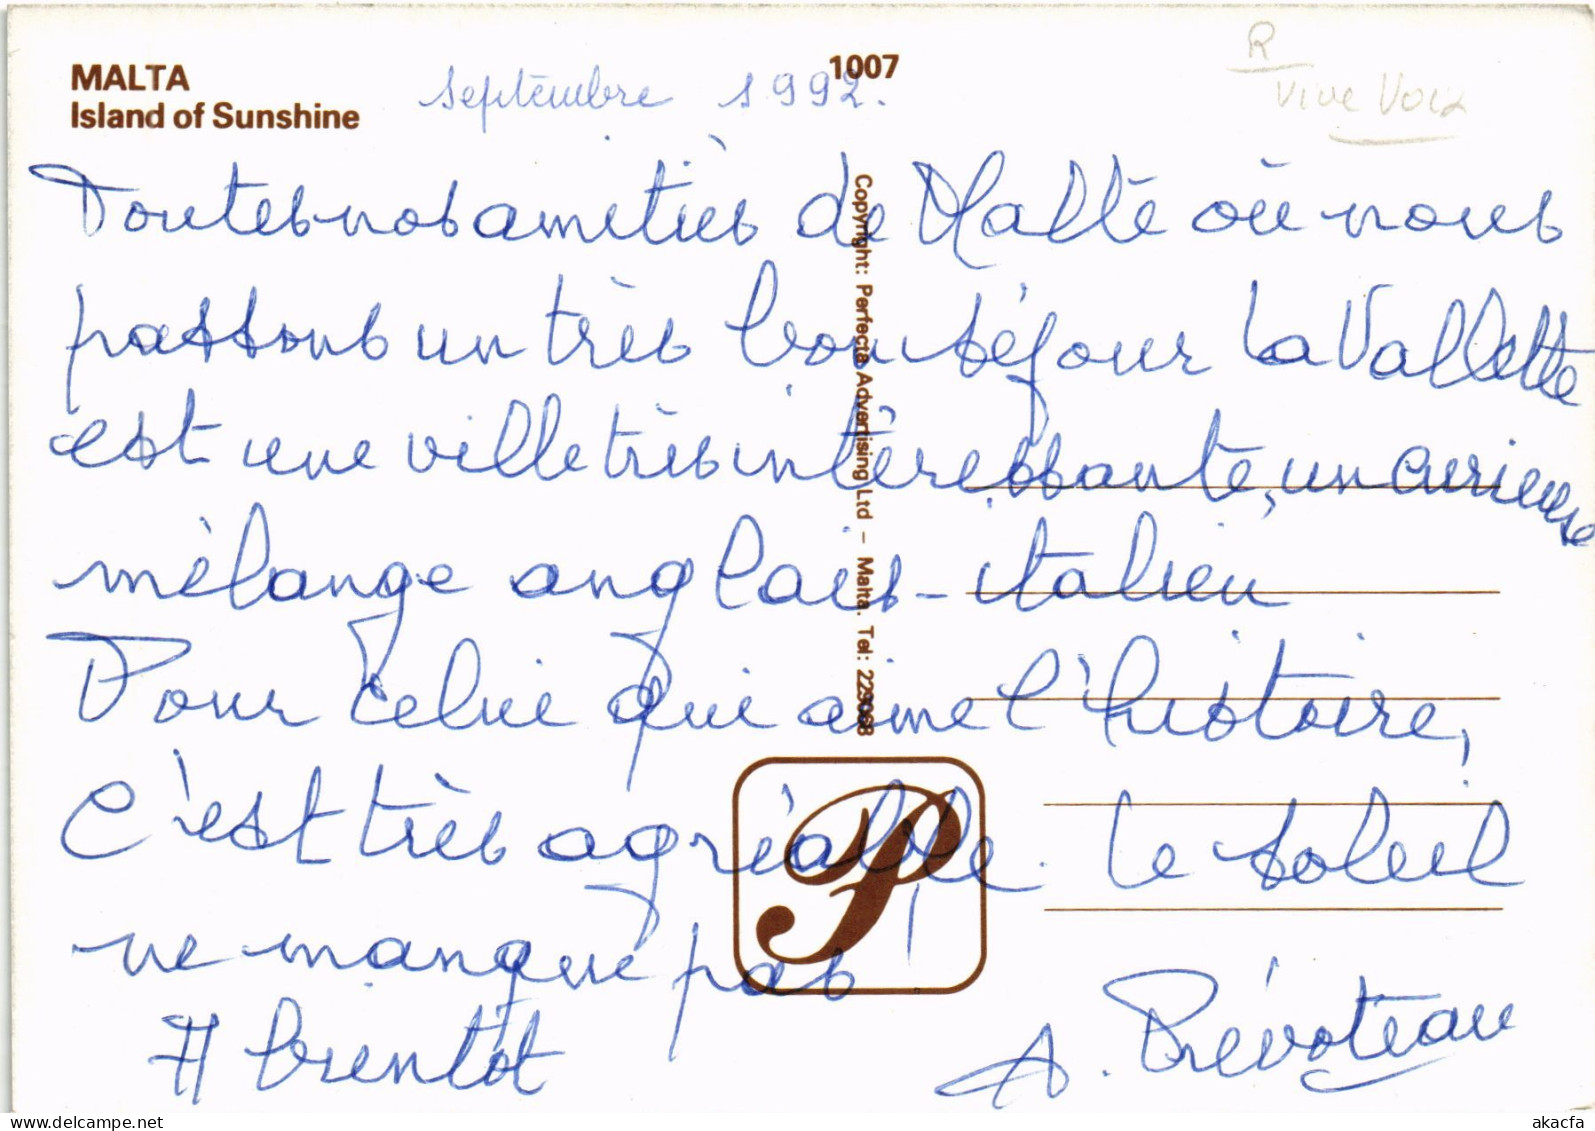 MALTA
Island of Sunshine
1007
septembre 1992.
R
Vive Voix
Toutes nos amitiés de Malte où nous
passons un très bon séjour La Vallette
est une ville très intéressante, un curieuse
mélange anglais-italien
Pour celui qui aime l'histoire,
c'est très agréable. Le soleil
ne manque pas !
A bientôt
A. Prévoteau
Copyright: Perfecta Advertising Ltd – Malta. Tel: 229068
P
delcampe.net
akacfa